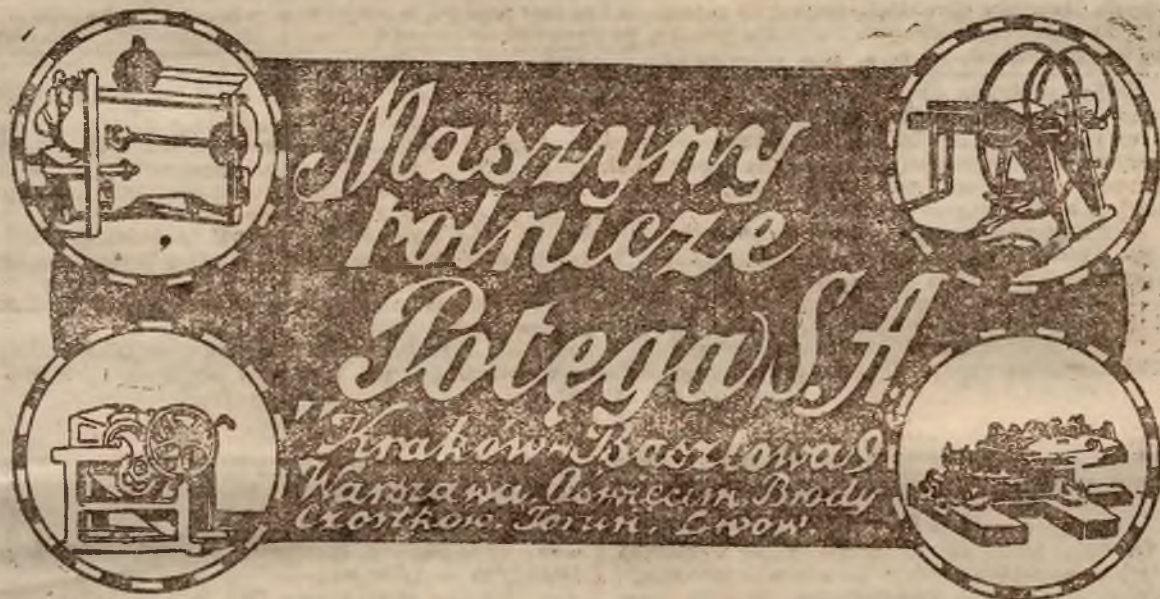 Maszyny
rolnicze
"Potęga" S.A.
Kraków-Basztowa 9
Warszawa, Oświęcim, Brody
Czortków. Toruń, Lwów.